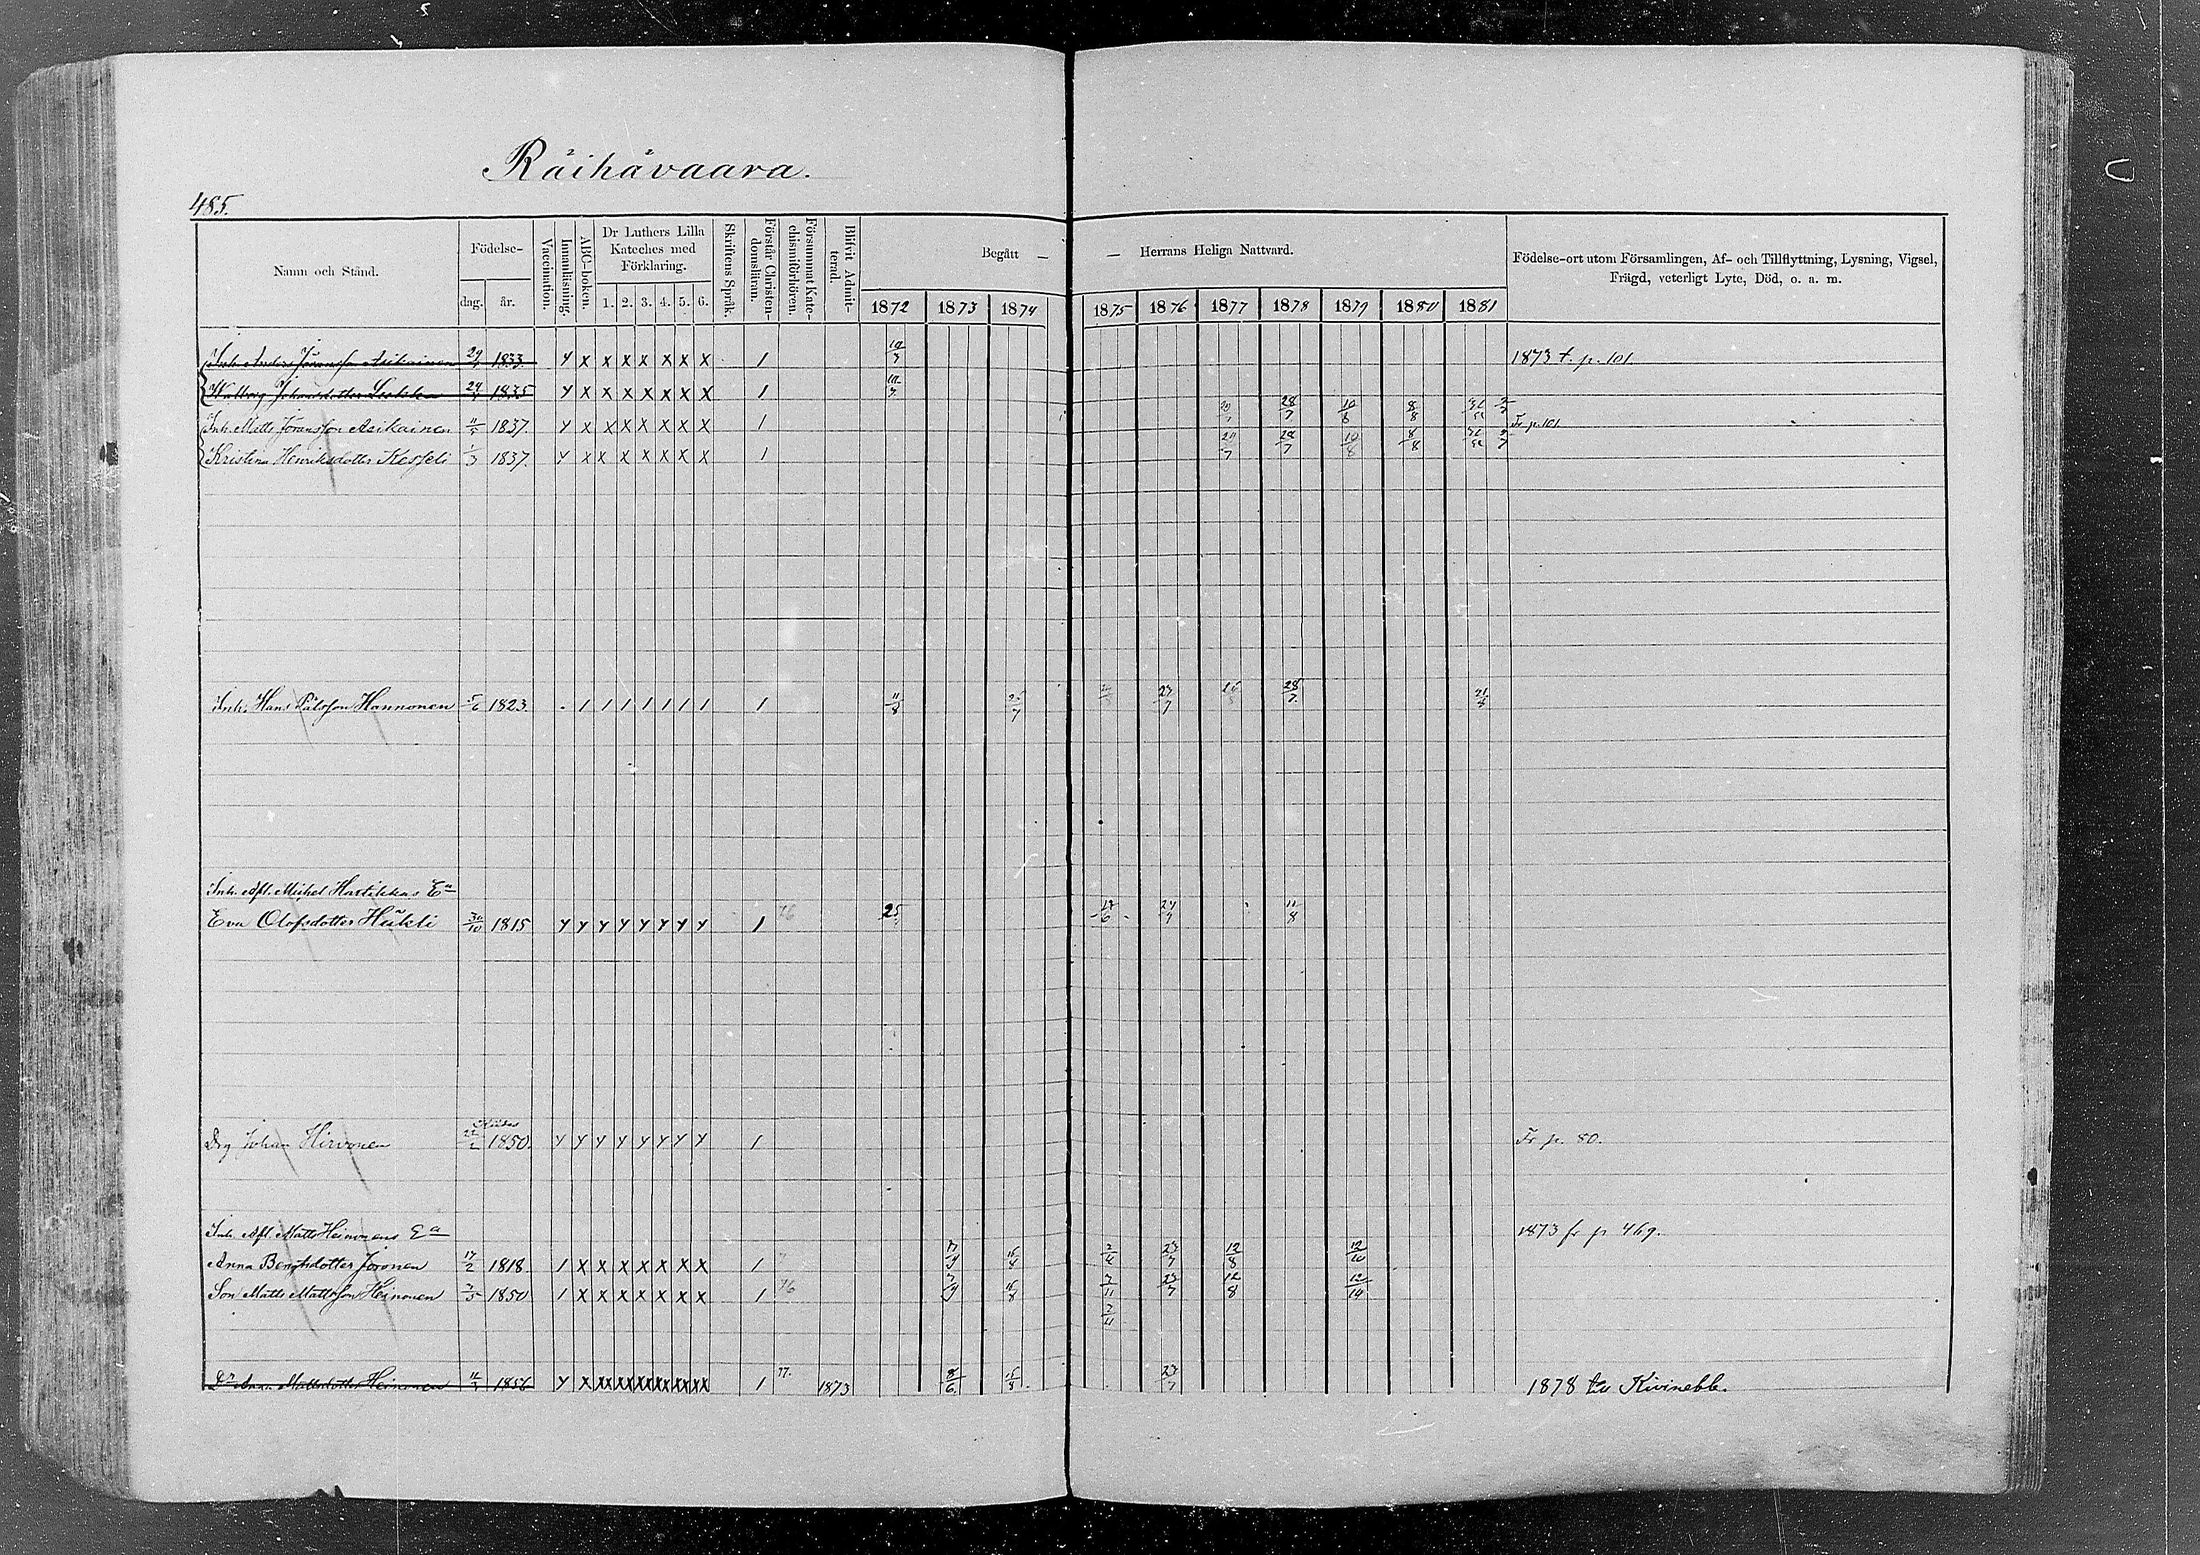 Räihävaara.
485.
Namn och Stånd. Födelse- dag. år. Vaccination. Innanläsning. ABC-boken. Dr Luthers Lilla Kateches med Förklaring. 1. 2. 3. 4. 5. 6. Skriftens Språk. Förstår Christendomsläran. Försummat Katechismiförhören. Blifvit Admitterad. Begått — — Herrans Heliga Nattvard. 1872 1873 1874 1875 1876 1877 1878 1879 1880 1881 Födelse-ort utom Församlingen, Af- och Tillflyttning, Lysning, Vigsel, Frägd, veterligt Lyte, Död, o. a. m.
Inh. Anders Jöransson Asikainen 1833. y x x x x x x x 1 1873 t. p. 101
Walborg Johansdotter 1835 y x x x x x x x 1
Inh. Matts Jöransson Asikainen 1837. y x x x x x x x 1 28/7 10/8 8/8 Fr p. 101
Kristina Henriksdotter Kesseli 1/3 1837. y x x x x x x x 1 28/7 10/8 8/8
Inh. Hans Pålsson Hannonen 5/6 1823. 1 1 1 1 1 1 1 1 11/8 25/7 27/7 28/7
Inh. Afl. Michel Hartikkas Ea
Eva Olofsdotter Hükli 30/10 1815 y y y y y y y y 1 76 25 24/7 11/8
Drg Johan Hirvonen 1850. y y y y y y y y 1 Fr p. 80.
Inh. Afl. Matts Heinonens Ea 1873 fr p 469.
Anna Bengtsdotter Joronen 17/2 1818. 1 x x x x x x x 1 27/7 12/8 12/10
Son Matts Mattsson Heinonen 3/5 1850 1 x x x x x x x 1 76 15/8 27/7 12/8 12/10
Dr Anna Mattsdotter Heinonen 1856 y x xx xx xx xx xx xx 1 77. 1873 8/6 15/8 23/7 1878 till Kivinebb.